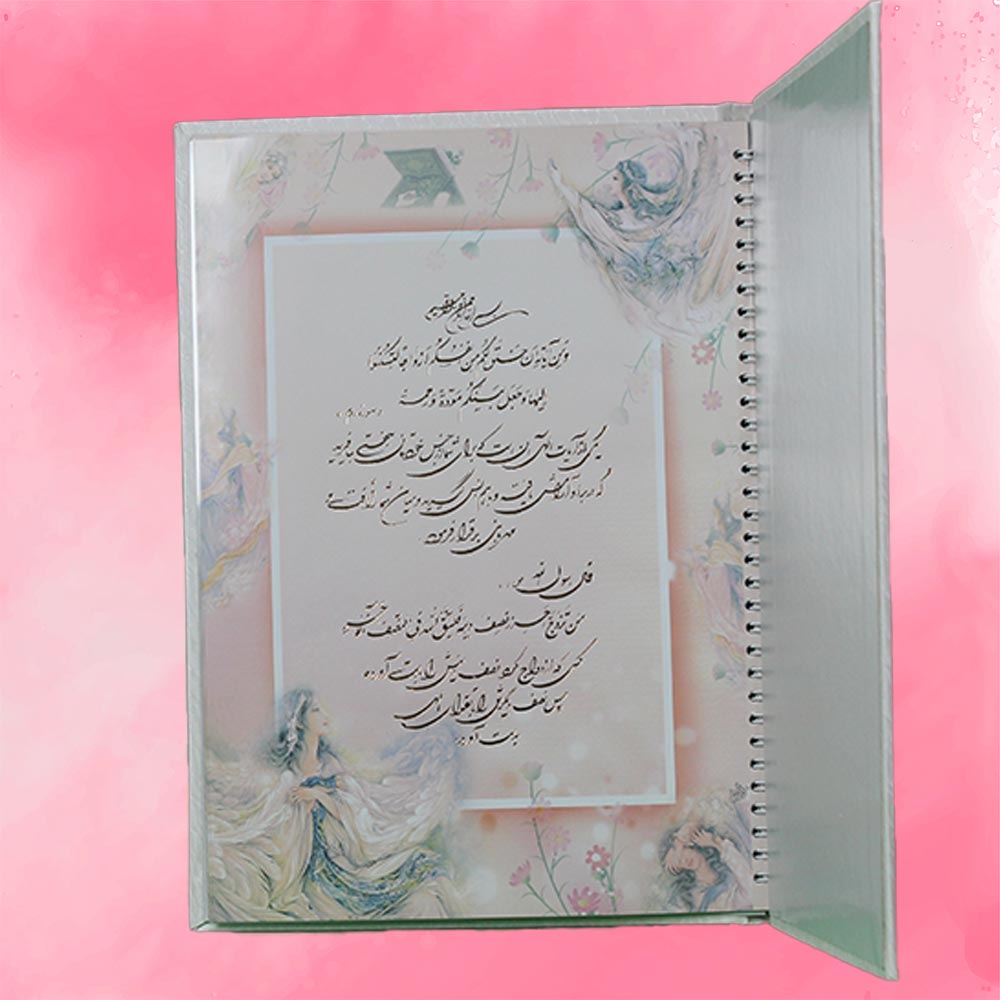 بسم الله الرحمن الرحیم
و من آیاته ان خلق لکم من انفسکم ازواجا لتسکنوا
الیها و جعل بینکم مودة و رحمة
«سوره روم»
یکی از آیات الهی آن است که برای شما از جنس خودتان جفتی بیافرید
که در بر او آرامش یافته و با هم انس گیرید و میان شما رأفت و
مهربانی برقرار فرمود
قال رسول الله
من تزوج احرز نصف دینه فلیتق الله فی النصف الاخر
کسی که ازدواج کند نصف دینش را بدست آورده
پس نصف دیگرش را با تقوای الهی
بدست آورد